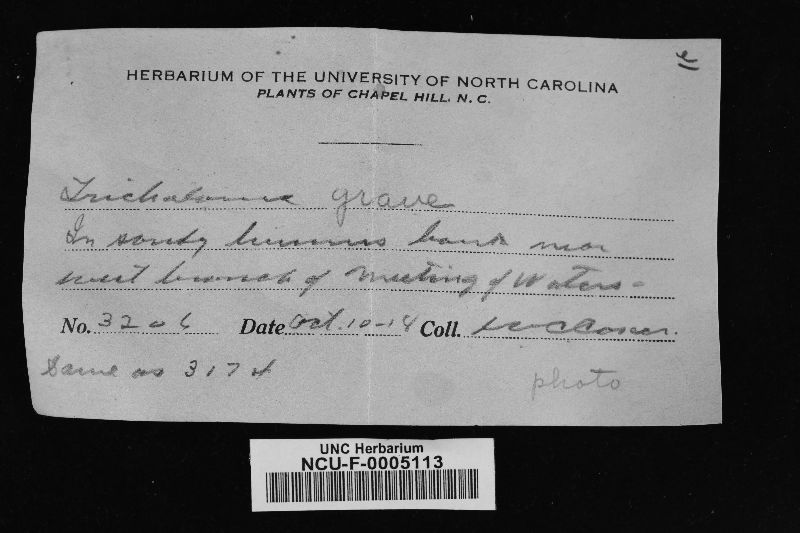 HERBARIUM OF THE UNIVERSITY OF NORTH CAROLINA
PLANTS OF CHAPEL HILL, N. C.
Tricholoma grave
In sandy humus bank near
west branch of Meeting of Waters-
No. 3206 Date Oct. 10-14 Coll.
Same as 3174
photo
UNC Herbarium
NCU-F-0005113